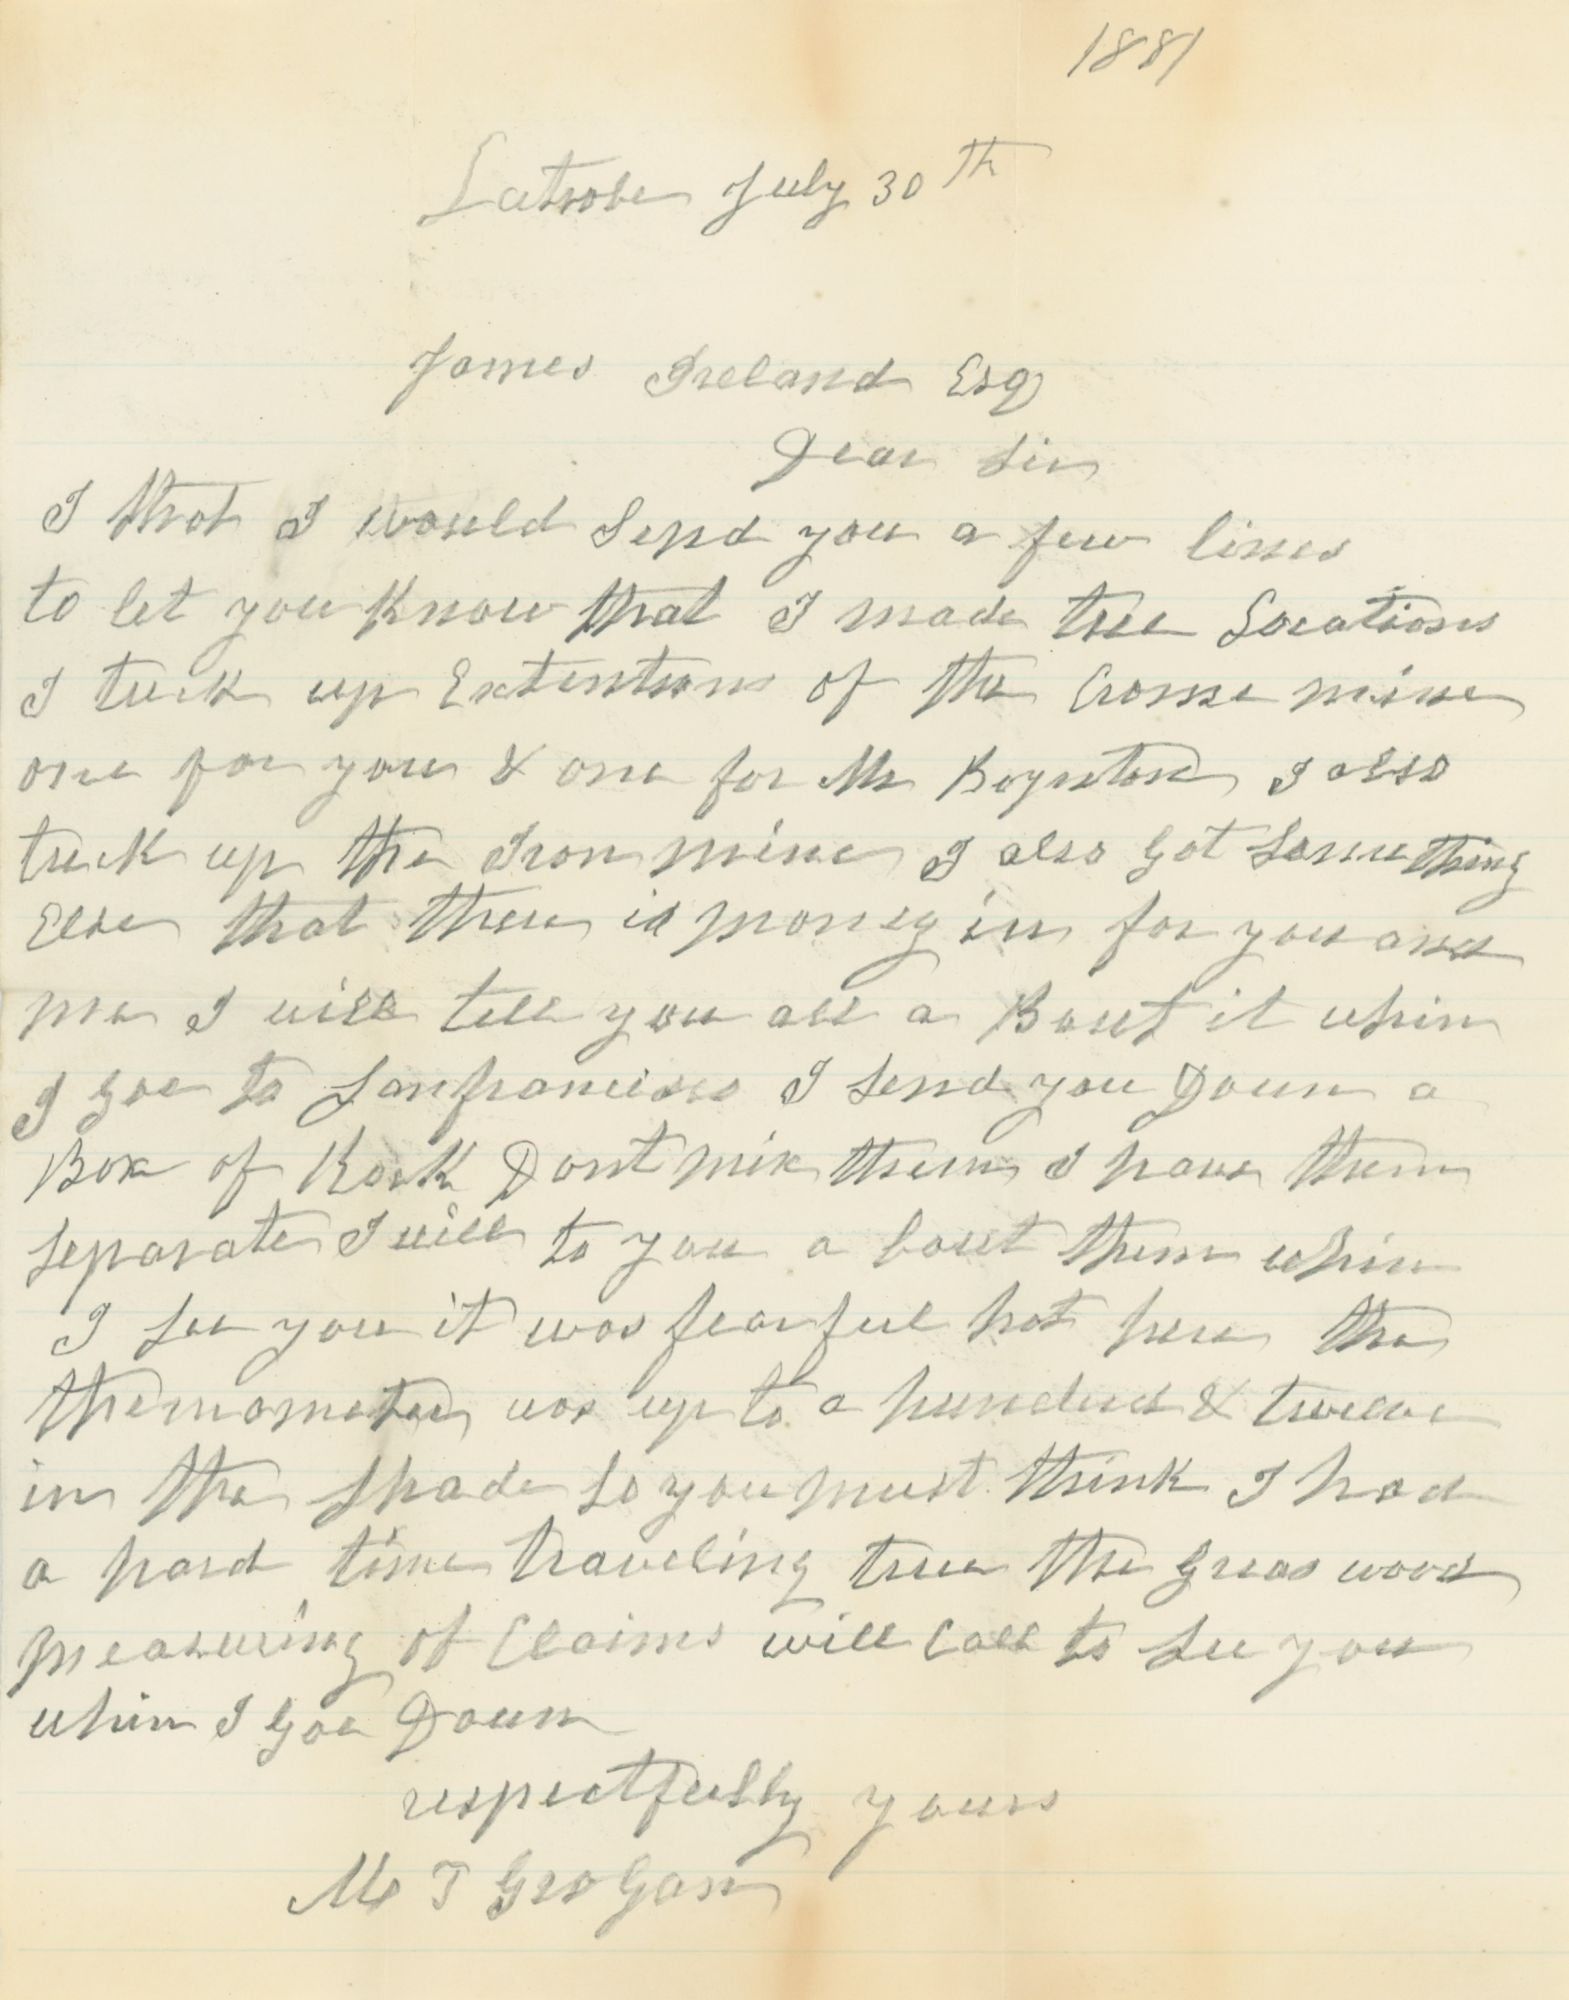 1881
Latrobe July 30th
James Ireland Esq
Dear Sir
I that I would Send you a few lines
to let you Know that I made tree Locations
I tuck up Extentions of the Crosse mine
one for you & one for Mr Boynton I also
tuck up the Iron mine I also got Something
Else that there is money in for you and
me I will tell you all a Bout it whin
I goe to Sanfrancisco I Send you Down a
Box of Rock Dont mix them I have them
Separate I will to you a bout them whin
I See you it was fearfull hot here the
themometer was up to a hundred & twelve
in the Shade So you must think I had
a hard time traveling true the greas wood
measuring of Claims will Call to See you
whin I goe Down
respectfully yours
M T Grogan